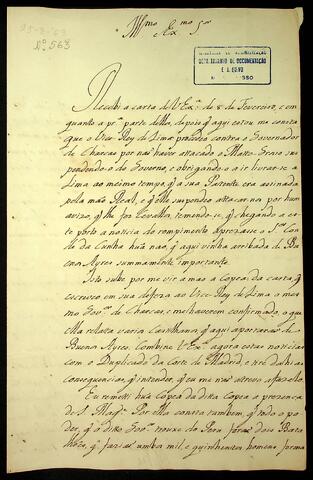 25-8-63
Nº 563
Illmo Exmo Snr
DOCUMENTAÇÃO
Recebi a carta de V. Exª. de 8 de Fevereiro, e em
quanto a prª parte della, depois q aqui estou me consta
que o Vice-Rey de Lima procedeo contra o Governador
de Charcas por naõ haver attacado o Matto-Grosso sus
pendendo-o do Governo, e obrigando-o a ir livrar-se a
Lima ao mesmo tempo, q a sua Patente era assinada
pela maõ Real, e q elle suspendeo attacar-nos por hum
avizo, q lhe foi Levallos, temendo-se, q chegando a es
te porto a noticia do rompimento aprezasse o Snr Con
de da Cunha hũa náo, q aqui vinha arribada de Bu
enos Ayres summamente importante.
Isto sube por me vir a maõ a Copea da carta, q
escreveo em sua defeza ao Vice-Rey de Lima o mes
mo Govor de Charcas, e me haverem confirmado, o que
elle rellata varios Castelhanos, q aqui aportaraõ de
Buenos Ayres. Combine V. Exª agora estas noticias
com o Duplicado da Corte de Madrid, e tire dalhi as
conseguencias, q intender, q eu me naõ atrevo a fazello.
Eu remetti hũa Copea da ditta Copea a prezença
de S. Magᵉ Por ella consta tambem, q todo o po
der, q o ditto Govor trouxe do Peru foraõ dois Bata
lhões, q faziaõ umba mil, e quinhentos homens, forma